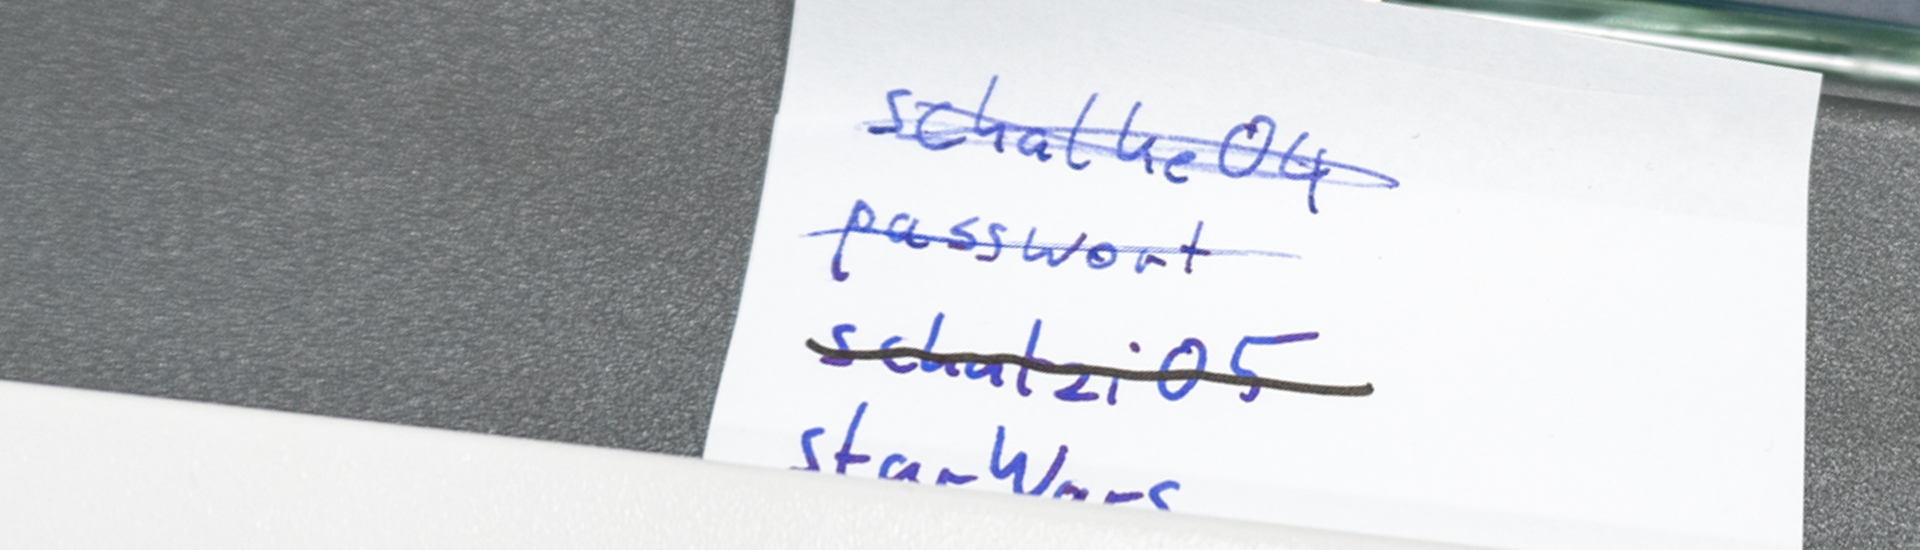 schalke04
passwort
schatzi05
starWars